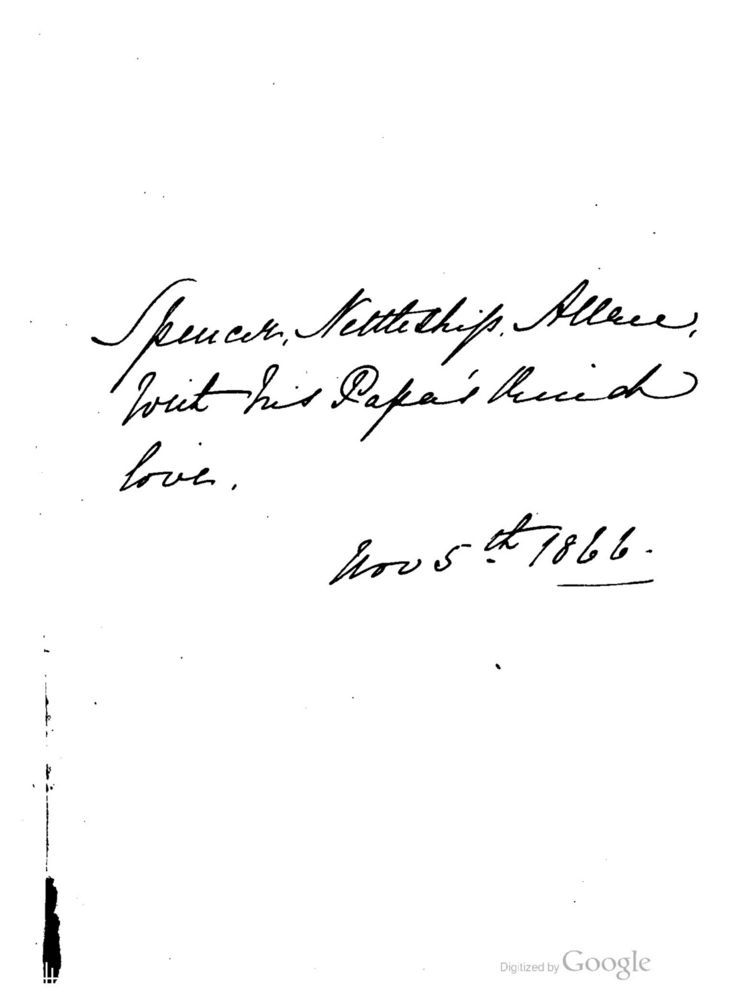 Spencer, Nettleship, Allen,
With his Papa's kind
love.
Nov 5th 1866.
Digitized by Google